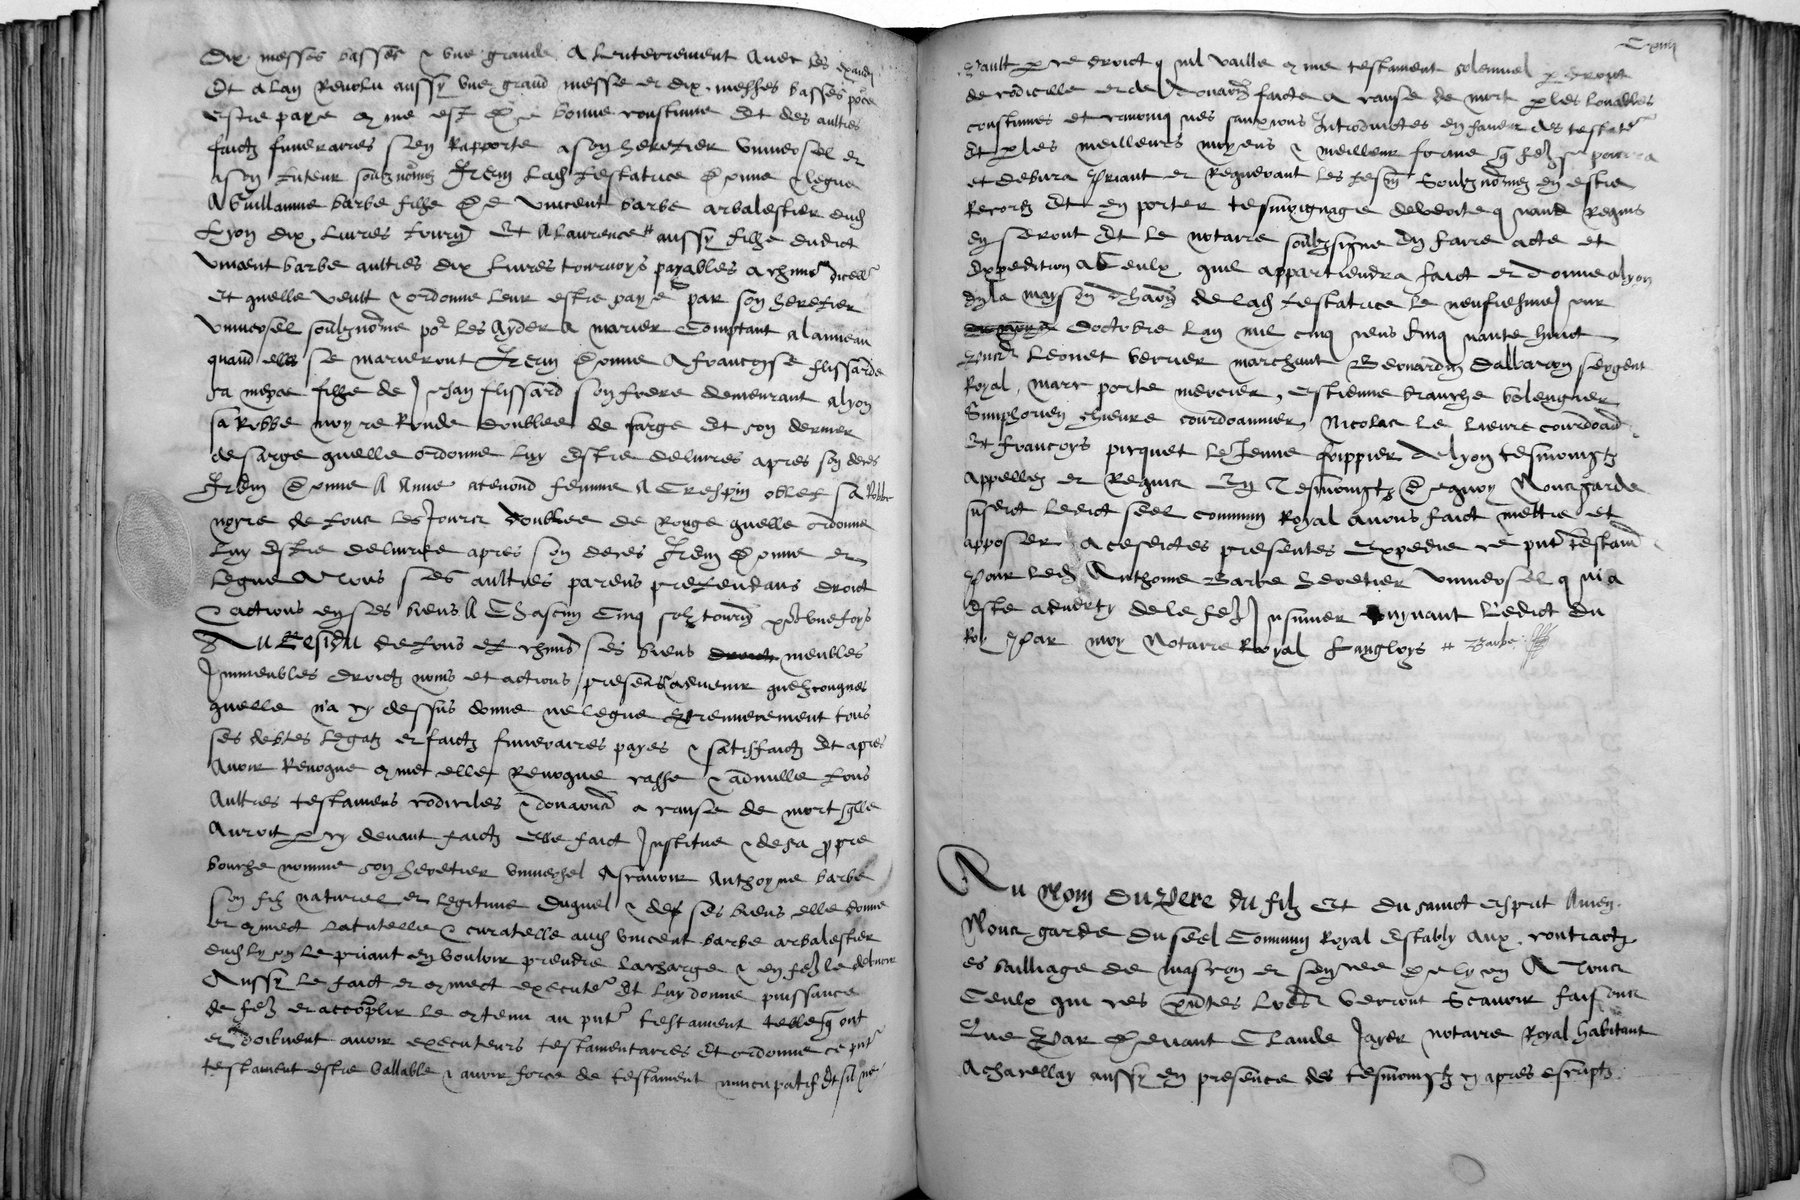 Dix messes basses & une grande A Lenterrement Avec les
Et a lan Revolu aussy une grand messe et dix messes basses
estre paye come est de bonne coustume Et des aultres
faictz funeraires sen Rapporte a son heretier universel et
a son tuteur soubznomez Item Lad testatrice donne & legue
A Guillanme barbe filhe de vincent barbe arbalestier dud
Lyon dix Livres tourn Et A Laurence # aussy filhe dudict
vincent barbe aultres dix Livres tournoys payables a chune dicelles
et quelle veult & ordonne leur estre paye par son heretier
universel soubznome por les Ayder A marier Comptant a lanneau
quand elles se marieront Item donne A francoyse flissarde
sa niepce filhe de Jehan flissard son frere demeurant a lyon
sa Robbe noyre Ronde doublee de sarge Et son dernier
de sarge quelle ordonne luy estre delivres apres son deces
Item donne A Anne femme A Crespin sa Robbe
noyre de tous les Jours doublee de Rouge quelle ordonne
luy estre delivree apres son deces Item donne et
legue A tous ses aultres parens pretendans droict
& actions en ses biens A Chascun Cinq solz tourn p une foys
Au Residu de tous et chuns ses biens meubles
Immeubles droictz noms et actions presens & advenir quelzcongnes
quelle na cy dessus donne ne legue tous
ses debtes legatz et faictz funeraires payes & satisfaictz Et apres
Avoir Revoque come elle Revoque casse & adnulle tous
Aultres testamens codiciles & donaons a cause de mort
Auroit p cy devant faictz elle faict Institue & de sa propre
bouche nomme son heretier universel Ascavoir Anthoyne barbe
son filz naturel et legitime duquel & de ses biens elle donne
et comect la tutelle & curatelle aud vincent barbe arbalestier
dud lyon le priant en vouloir prendre la charge & en fere le debvoir
Aussy le faict et comect executer Et luy donne puissance
de fere et accomplir le contenu au pnt testament telle q ont
et doibvent avoir executeurs testamentaires Et ordonne ce pnt
testament estre vallable & avoir force de testament nuncupatif Et sil ne
vault p ce droict q nil vaille come testament solemnel p droict
de codicille et de donaon faicte a cause de mort p les louables
coustumes et canonicques sanxions Introduictes en faveur des testateurs
Et p les meilleurs moyens & meilleur forme q fere se pourra
et debvra Priant et Requerant les tesm Soubznomez en estre
Recors Et en porter tesmoignage de verite q uand Requis
en seront Et le notaire soubzsigne en faire acte et
Expedition A Ceulx quil appartiendra faict et donne a lyon
en la mayson dhaon de lad testatrice le neufviesme jour
doctobre Lan mil cinq cens Cinq uante huict
Leonet verrier marchant Bernardin sergent
Royal, marc porte mercier, estienne branche bolengier
Simphorien chievre courdoannier, Nicolas le lievre courdoan
Et francoys picquet le Jeune frippier de lyon tesmoingtz
Appellez et Requis En Tesmoingtz de quoy Nous garde
susdict ledict seel commun Royal avons faict mettre et
apposer A cesdictes presentes Expedie ce pnt testam
Pour led Anthoine Barbe heretier universel q ui a
este adverty de le fere Insinuer suyvant Ledict du
Roy Par moy Notaire Royal Langloys # Barbe
Au Nom du Pere du filz Et du sainct esprit Amen
Nous garde du seel Commun Royal Estably aux contractz
es bailliage de mascon et sen cee de lyon A Tous
Ceulx qui ces pntes Lres verront Scavoir faisons
Que Par devant Claude Jayer notaire Royal habitant
A chavellay aussy en presence des tesmoingtz cy apres escriptz